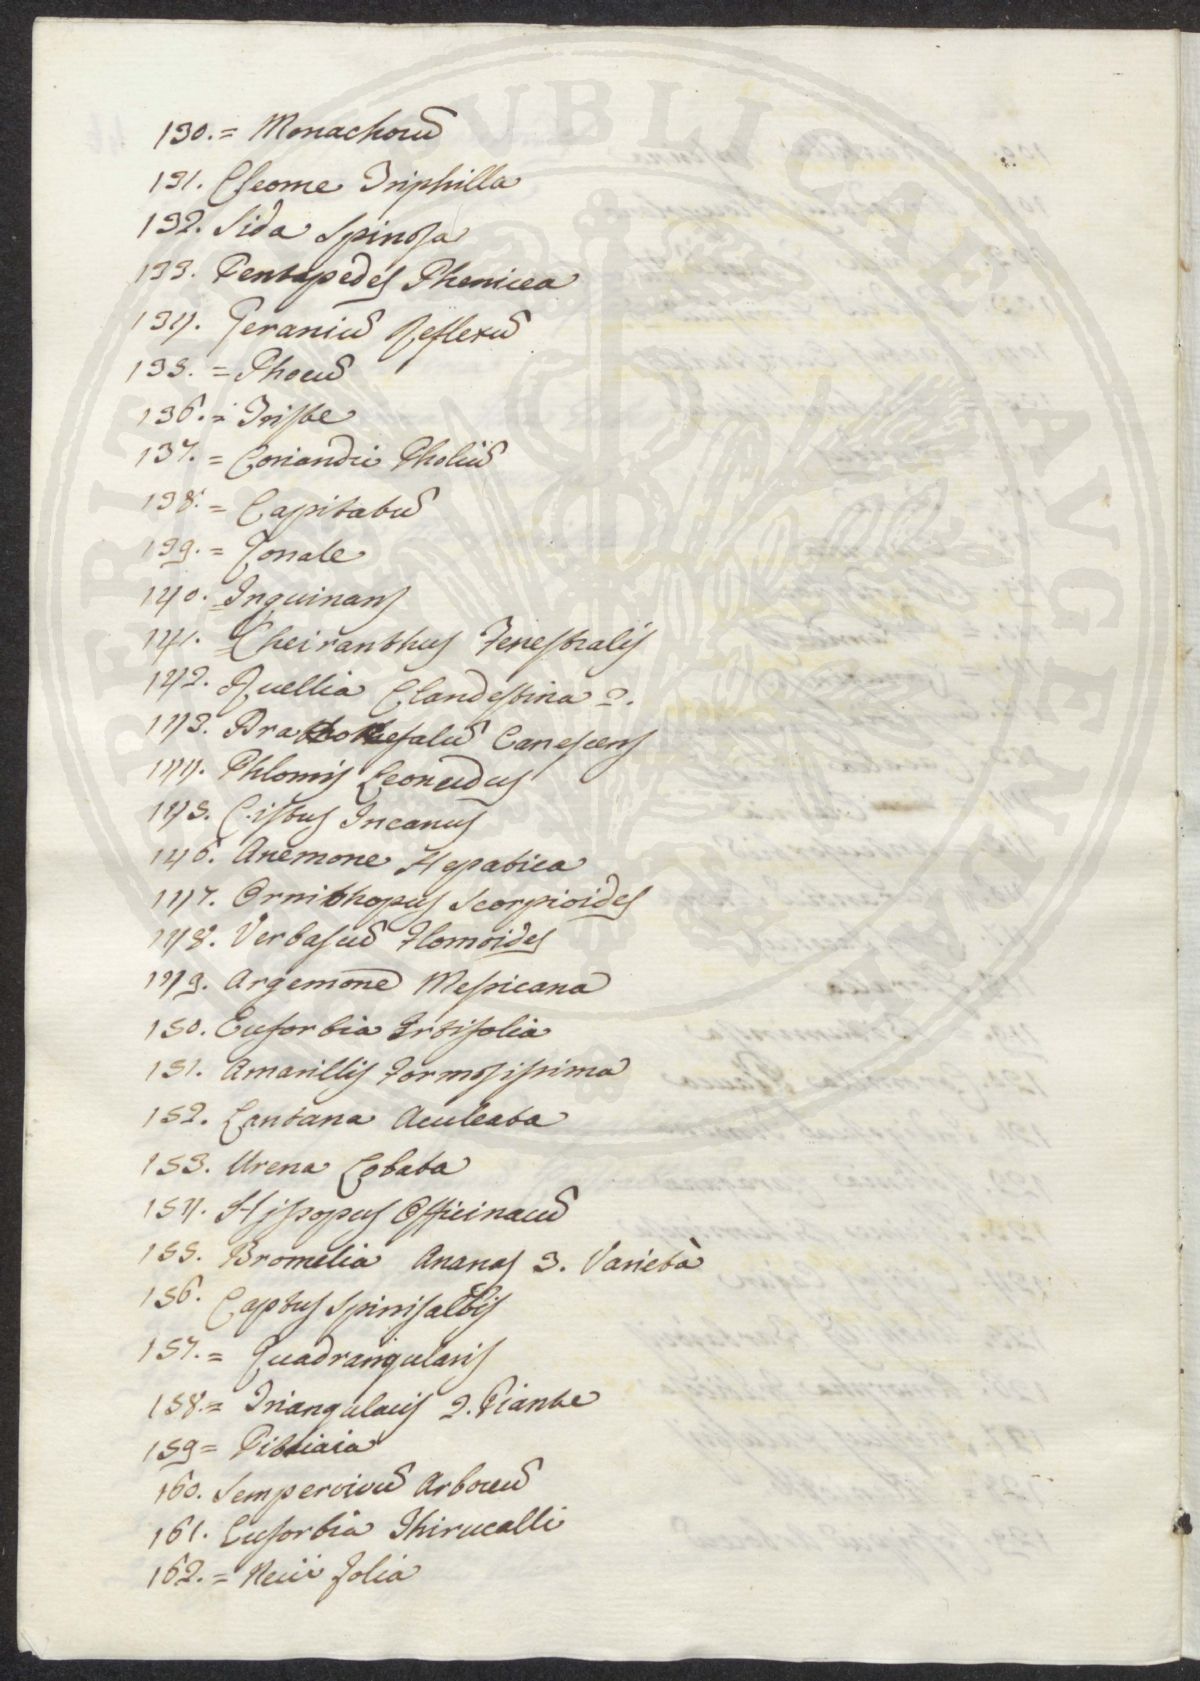 130. = Monachorū
131. Cleome Triphilla
132. Sida Spinosa
133. Pentapedes Phenicea
134. Geraniū Reflexū
135. = Phocū
136. = Triste
137. = Coriandri Pholiū
138. = Capitatū
139. = Zonale
140. Inquinans
141. Cheiranthus Fenestralis
142. Ruellia Clandestina 2.
143. Canescens
144. Phlomis Leonurus
145. Cistus Incanus
146. Anemone Hepatica
147. Ornithopus Scorpioides
148. Verbascū Flomoides
149. Argemone Messicana
150. Euforbia Irtifolia
151. Amarillis Formosissima
152. Lantana Aculeata
153. Urena Lobata
154. Hissopus Officinarū
155. Bromelia Ananas 3. Varietà
156. Captus Spinisalbis
157. = Quadrangularis
158. = Triangularis 2. Piante
159 = Pittiaia
160. Sempervivū Arboreū
161. Euforbia Thirucalli
162. = Nerii folia
PUBLICAE AUGENDAE